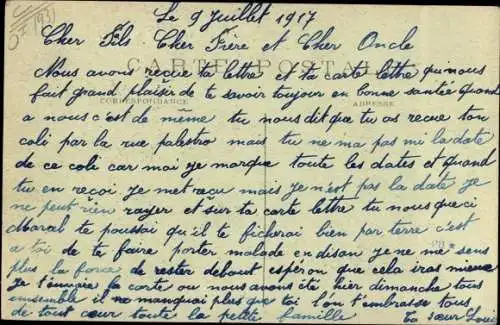 Le 9 Juillet 1917
Cher Fils Cher Frère et Cher Oncle
CARTE POSTALE
Nous avons reçue ta lettre et ta carte lettre qui nous
fait grand plaisir de te savoir toujour en bonne santée quand
CORRESPONDANCE ADRESSE
a nous c'est de même tu nous dit que tu as reçue ton
coli par la rue palestro mais tu ne ma pas mi la date
de ce coli car moi je marque toute les dates et quand
tu en reçoi je met reçu mais je n'est pas la date je
ne peut rien rayer et sur ta carte lettre tu nous que ci
Maral te poussai qu'il te ficherai bien par terre c'est
a toi de te faire porter malade en disan je ne me sens
plus la force de rester debout espéron que cela iras mieux
je t'envoie la carte ou nous avons été hier dimanche tous
ensemble il ne manquai plus que toi l'on t'embrasse tous
de tout cœur toute la petite famille Ta sœur Loui